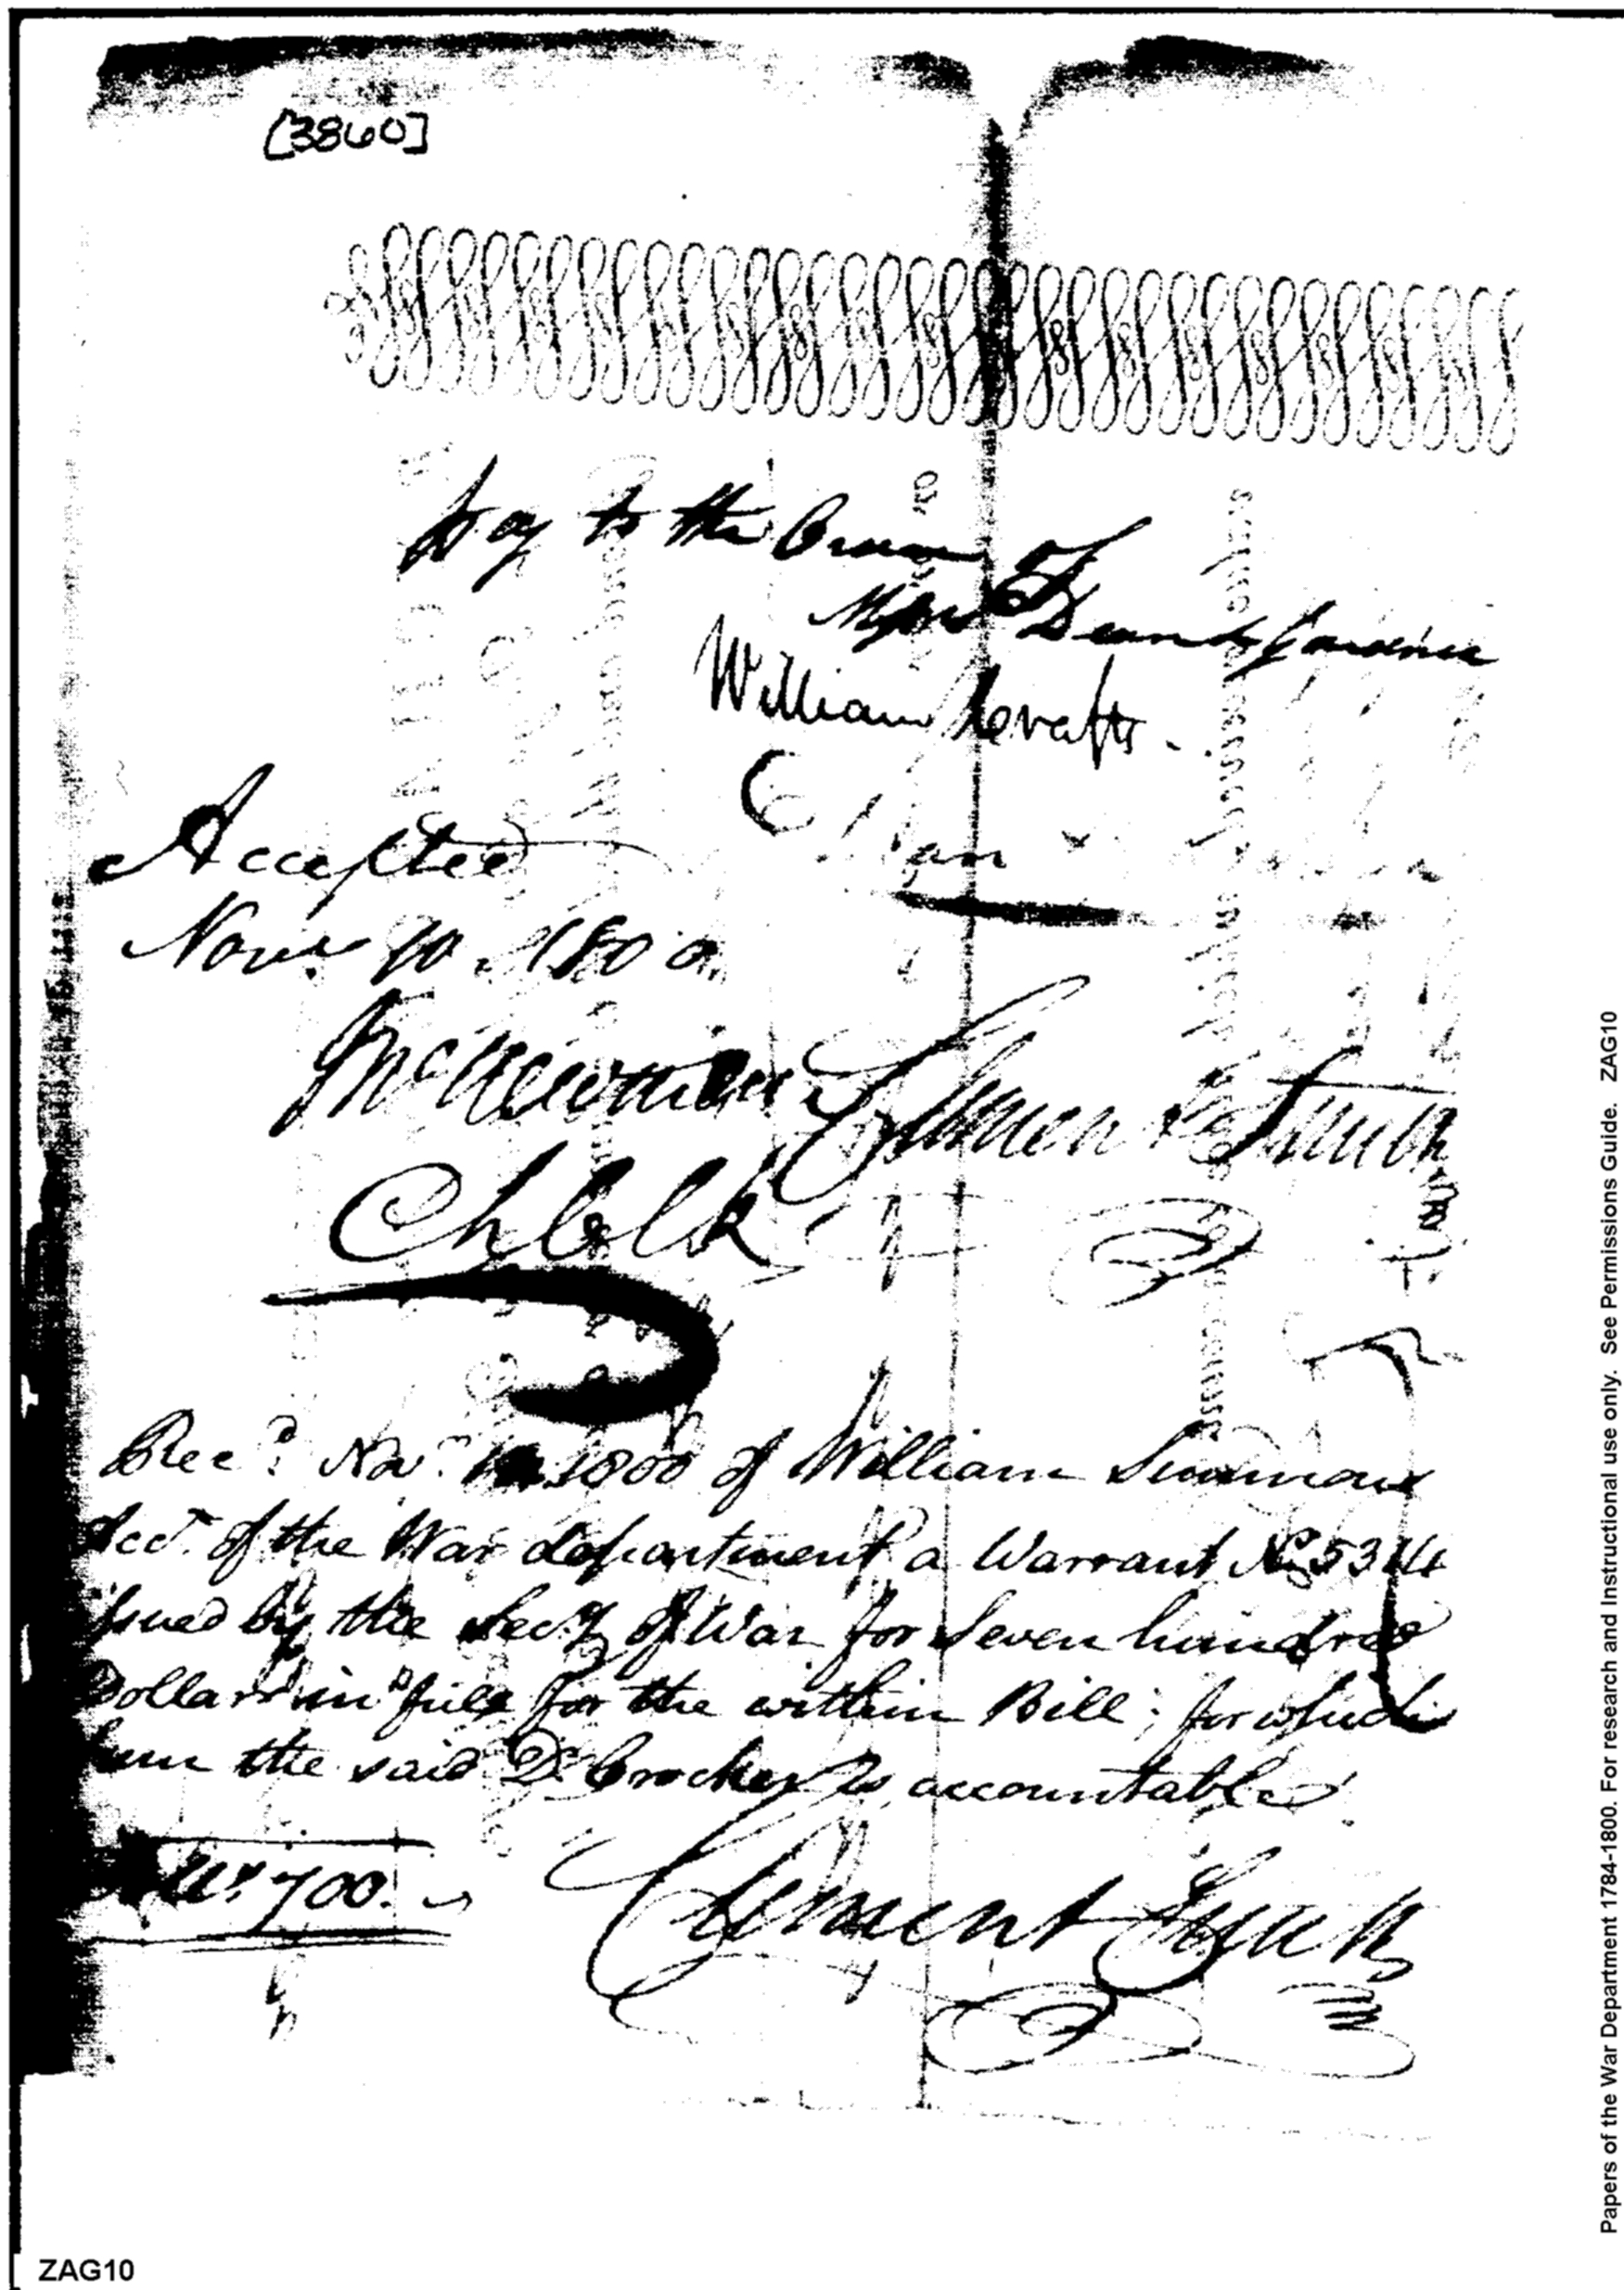 [3860]
pay to the Order of
Messrs Dunn & Gardner
William Crafts.
Accepted
Novr. 10. 1800.
Ch Clk
Recd. Nov. 1800 of William Simmons
Acct. of the War department a Warrant No. 5314
Issued by the Secy of War for Seven hundred
Dollars in full for the within Bill; for which
sum the said Dr. Crocker is accountable
700.
Clement Smith
Papers of the War Department 1784-1800. For research and Instructional use only. See Permissions Guide. ZAG10
ZAG10